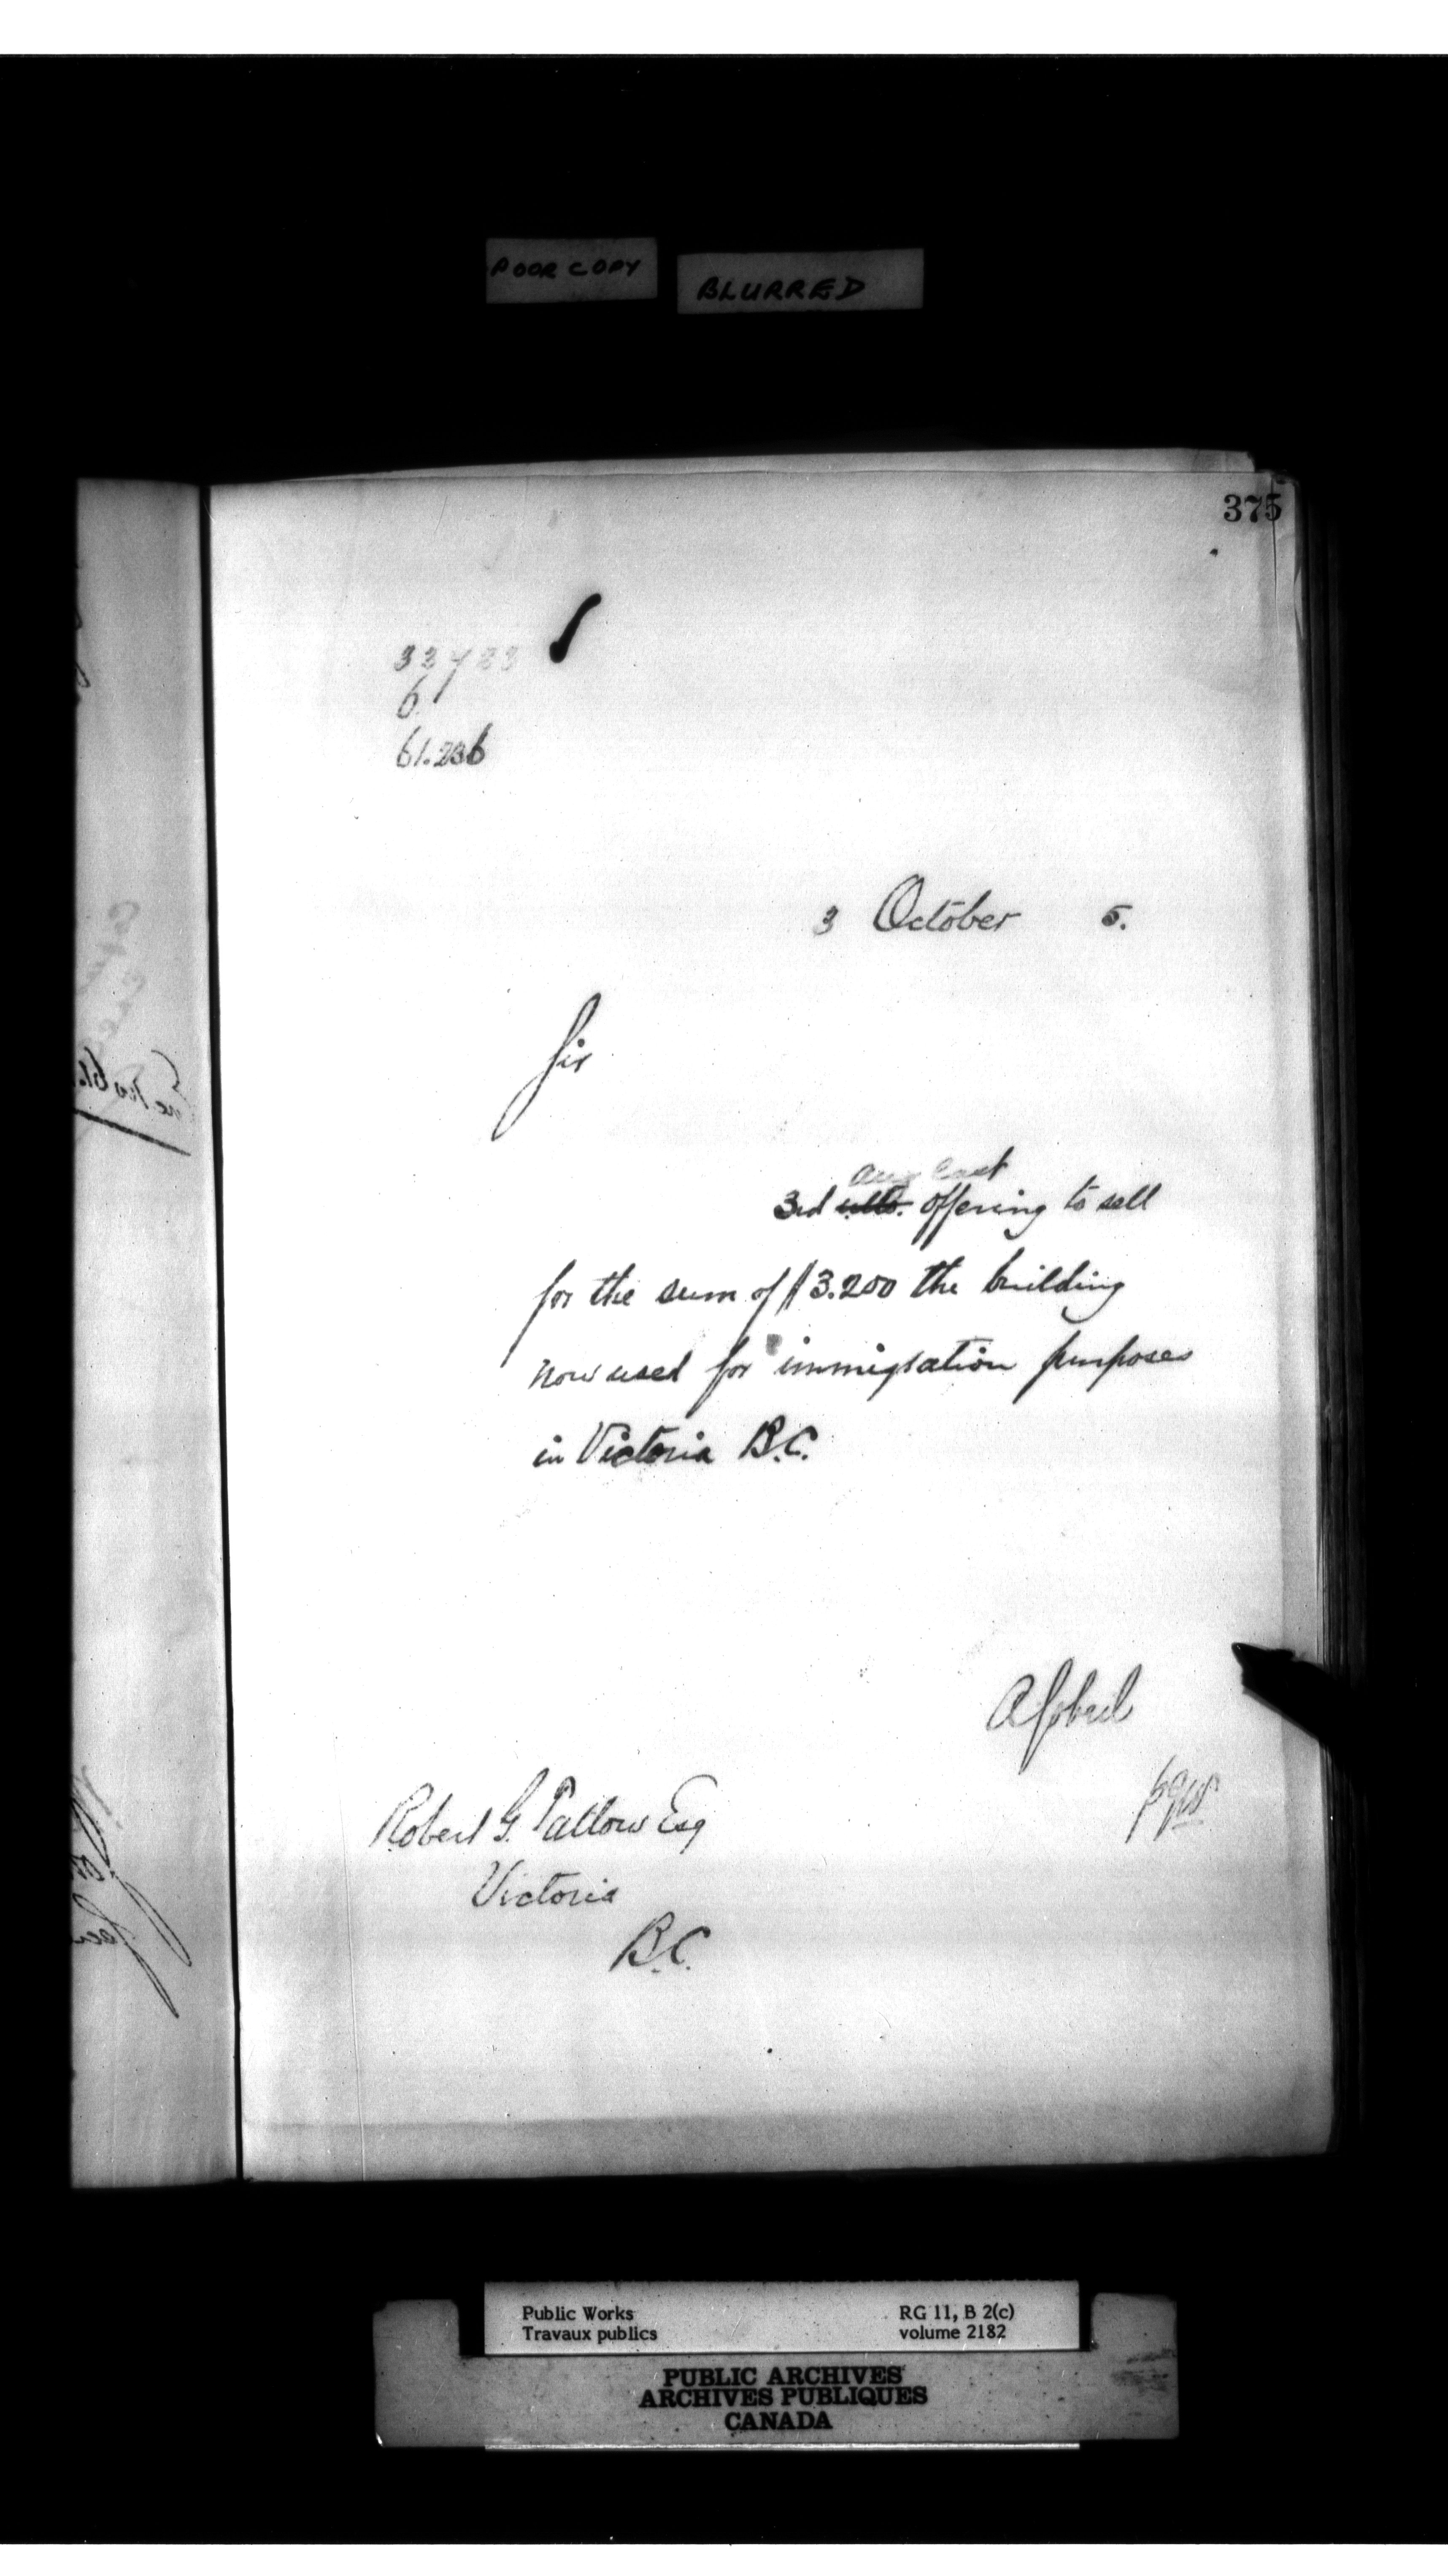 POOR COPY
BLURRED
375
6
61.236
3 October 5.
Sir
Aug last
3rd ulto. offering to sell
for the sum of $3.200 the building
now used for immigration purposes
in Victoria B.C.
A Gobeil
Robert G. Tatlow Esq
Victoria
B.C.
Public Works
Travaux publics
RG 11, B 2(c)
volume 2182
PUBLIC ARCHIVES
ARCHIVES PUBLIQUES
CANADA